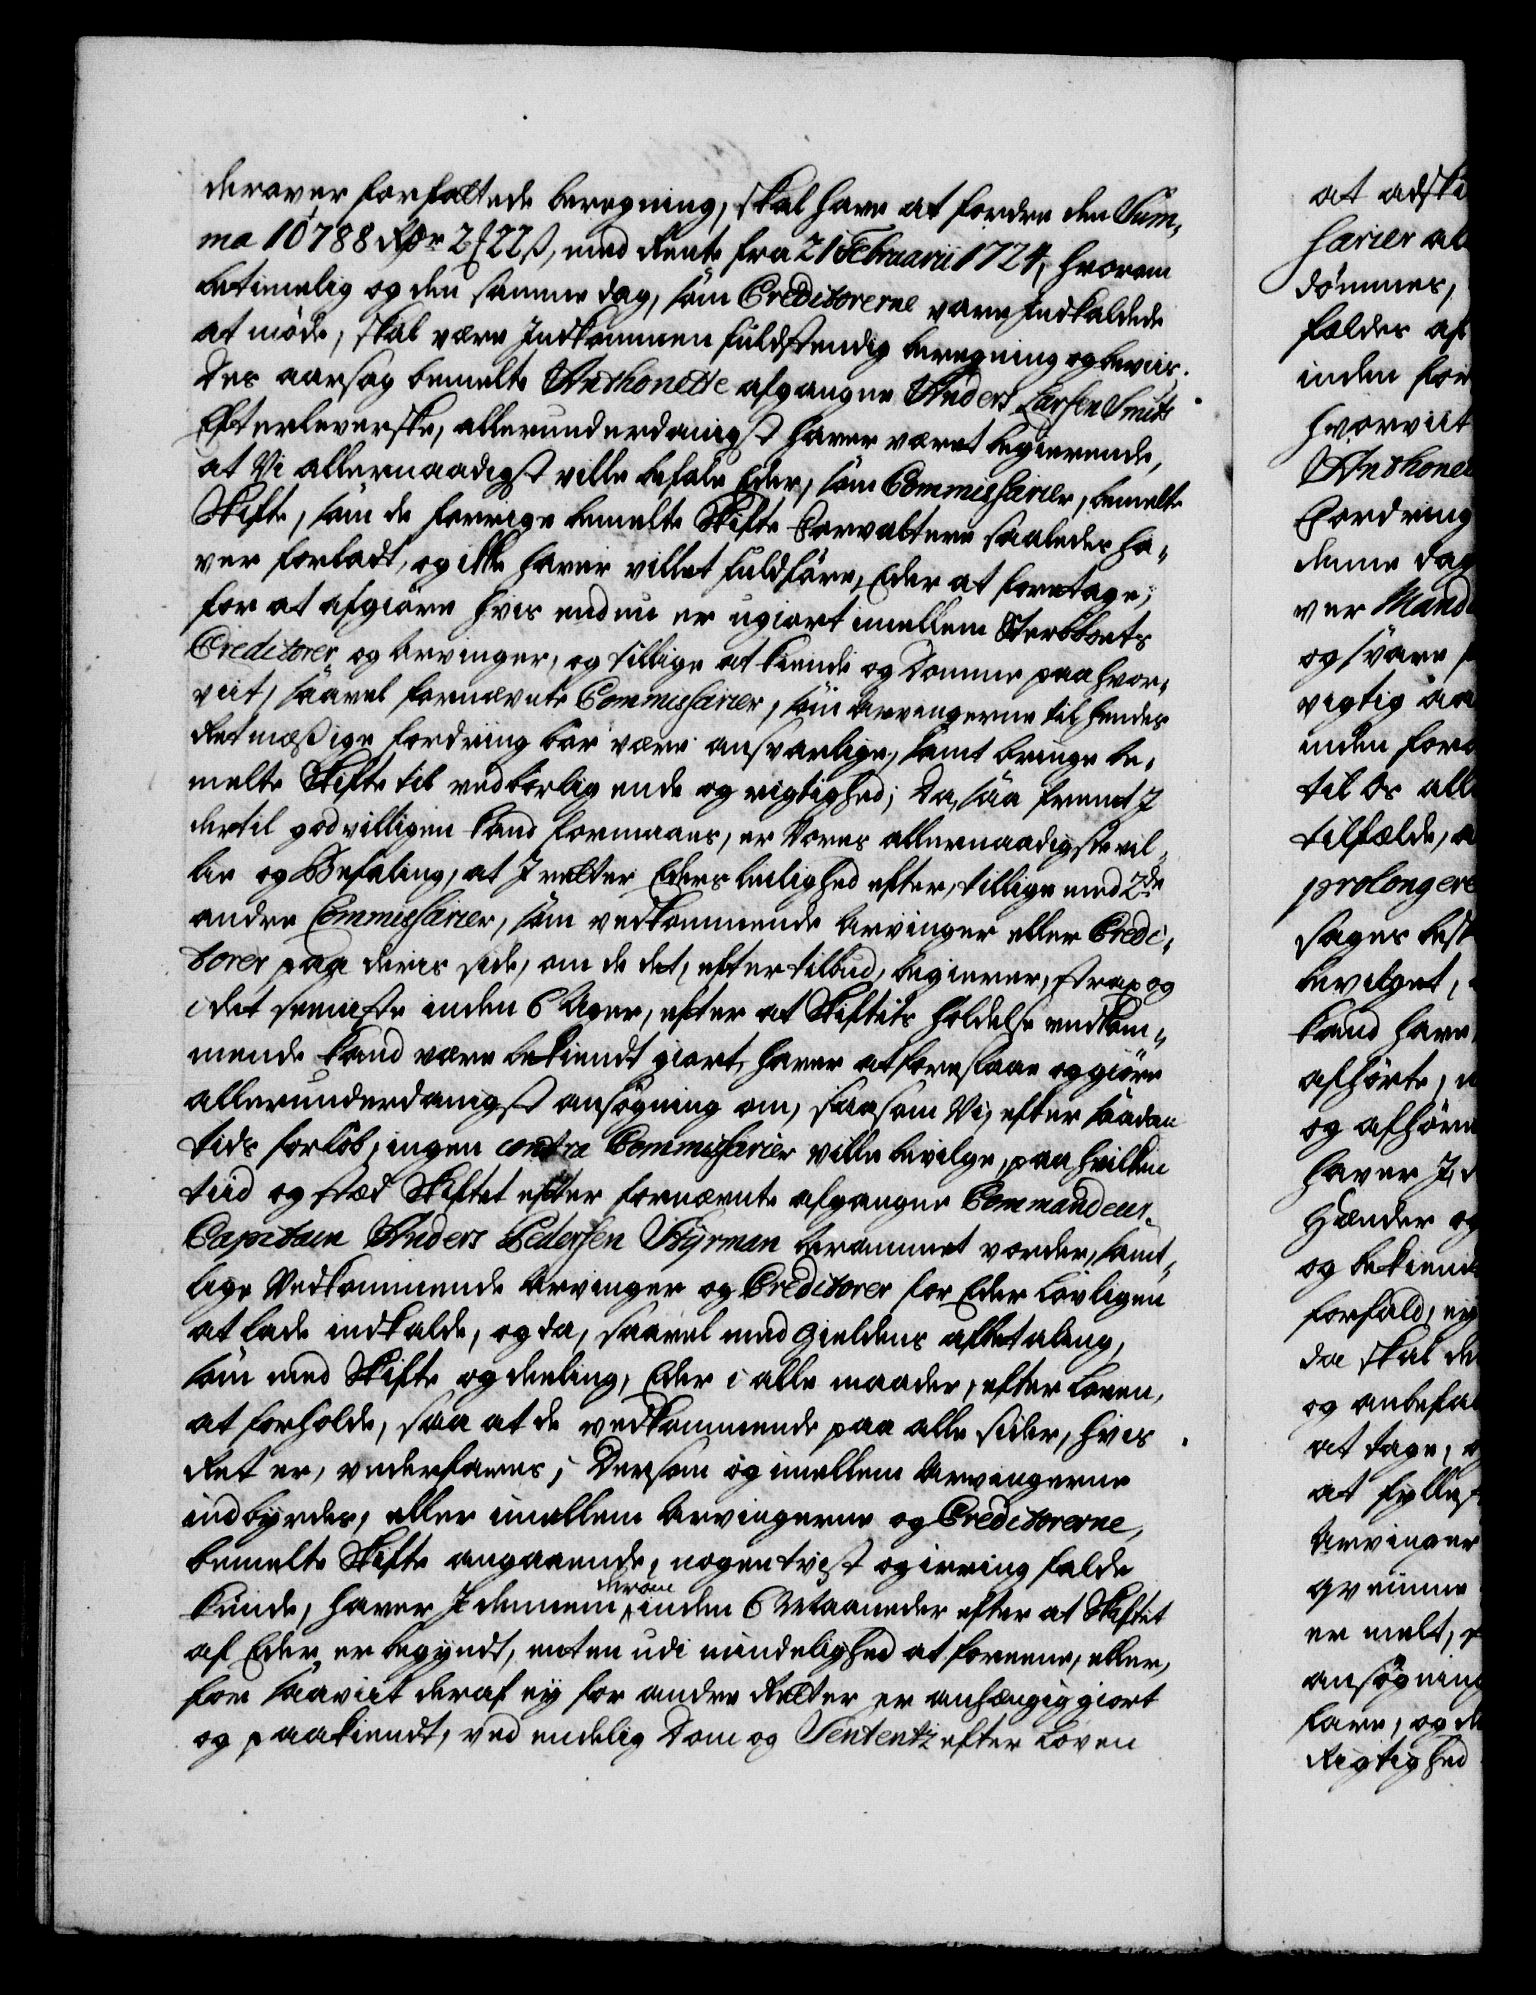 derover forfattede beregning, skal have at fordre den Sum¬
ma 10788 Rdr 2 ℔ 22 ß, med Rente fra 21 Februarii 1724, hvorom
betimelig og den samme dag, som Creditorerne vare Indkaldede
at møde, skal være Indkommen fuldstendig beregning og beviis.
Des aarsag bemelte Anthonette afgangne Anders Larsen Smits
Efterleverske, allerunderdanigst haver været begierende,
at Vi allernaadigst ville befale Eder, som Commissarier, bemelte
Skifte, som de forrige bemelte Skifte Forvaltere saaledes ha¬
ver forladt, og ikke haver villet fuldføre, Eder at foretage,
for at afgiøre hvis endnu er ugiort imellem Sterbboets
Creditorer og Arvinger, og tillige at kiende og Dømme paa hvor¬
viit, saavel fornævnte Commissarier, som Arvingerne til hendes
Retmæßige fordring bør være ansvarlige, samt bringe be¬
melte Skifte til vedbørlig ende og rigtighed; Da, saa fremt I
dertil godvilligen kand formaaes, er Vores allernaadigste vil¬
lie og Befaling, at I retter Eders leilighed efter, tillige med 2de
andre Commissarier, som vedkommende Arvinger eller Credi¬
torer paa deris side, om de det, efter tilbud, begierer, strax og
i det seeniste inden 6 Uger, efter at Skiftets holdelse vedkom¬
mende kand være bekiendt giort, haver at foreslaae og giøre
allerunderdanigst ansøgning om, saasom Vi, efter saadan
tids forløb, ingen contra Commissarier ville bevilge, paa hvilken
tiid og stæd Skiftet efter fornævnte afgangne Commandeur
Capitain Anders Pedersen Styrman berammet vorder, samt¬
lige Vedkommende Arvinger og Creditorer for Eder lovligen
at lade indkalde, og da, saavel med Gieldens aftbetaling,
som med Skifte og deeling, Eder i alle maader, efter Loven,
at forholde, saa at de vedkommende paa alle sider, hvis
Ret er, vederfares; Dersom og imellem Arvingerne
indbyrdes, eller imellem Arvingerne og Creditorerne,
bemelte Skifte angaaende, nogen tvist og irring falde
kunde, haver I dennem derom inden 6 Maaneder efter at Skiftet
af Eder er begyndt, enten udi mindelighed at foreene, eller,
for saaviit deraf ey for andre Retter er anhængig giort
og paakiendt, ved endelig Dom og Sententz efter Loven
at adski
sarier al
dømmes,
fældes af
inden for
hvorviit
Anthonet
Fordring
denne dag
ver Mand
og svare
vigtig aa
inden for
til Os all
tilfælde, a
prolongere
sages best
bevilget,
kand have
afhørte,
og afhøre
haver I, d
Hænder og
og bekiend
forfald, ey
da skal de
og anbefal
at tage,
at fyllest
Arvinger
qvemme
er melt,
ansøgning
fare, og d
Rigtighed